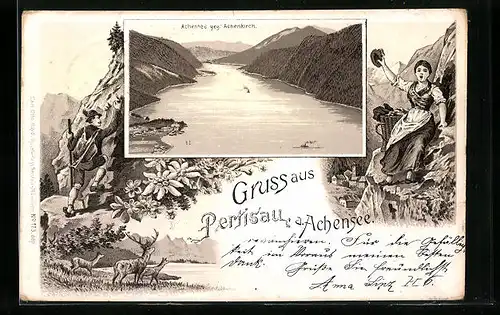 Achensee geg. Achenkirch.
Gruss aus
Pertisau, a. Achensee.
revanchieren. Für die Gefällig-
keit im Voraus meinen besten
Dank. Grüße Sie freundlichst
Anna